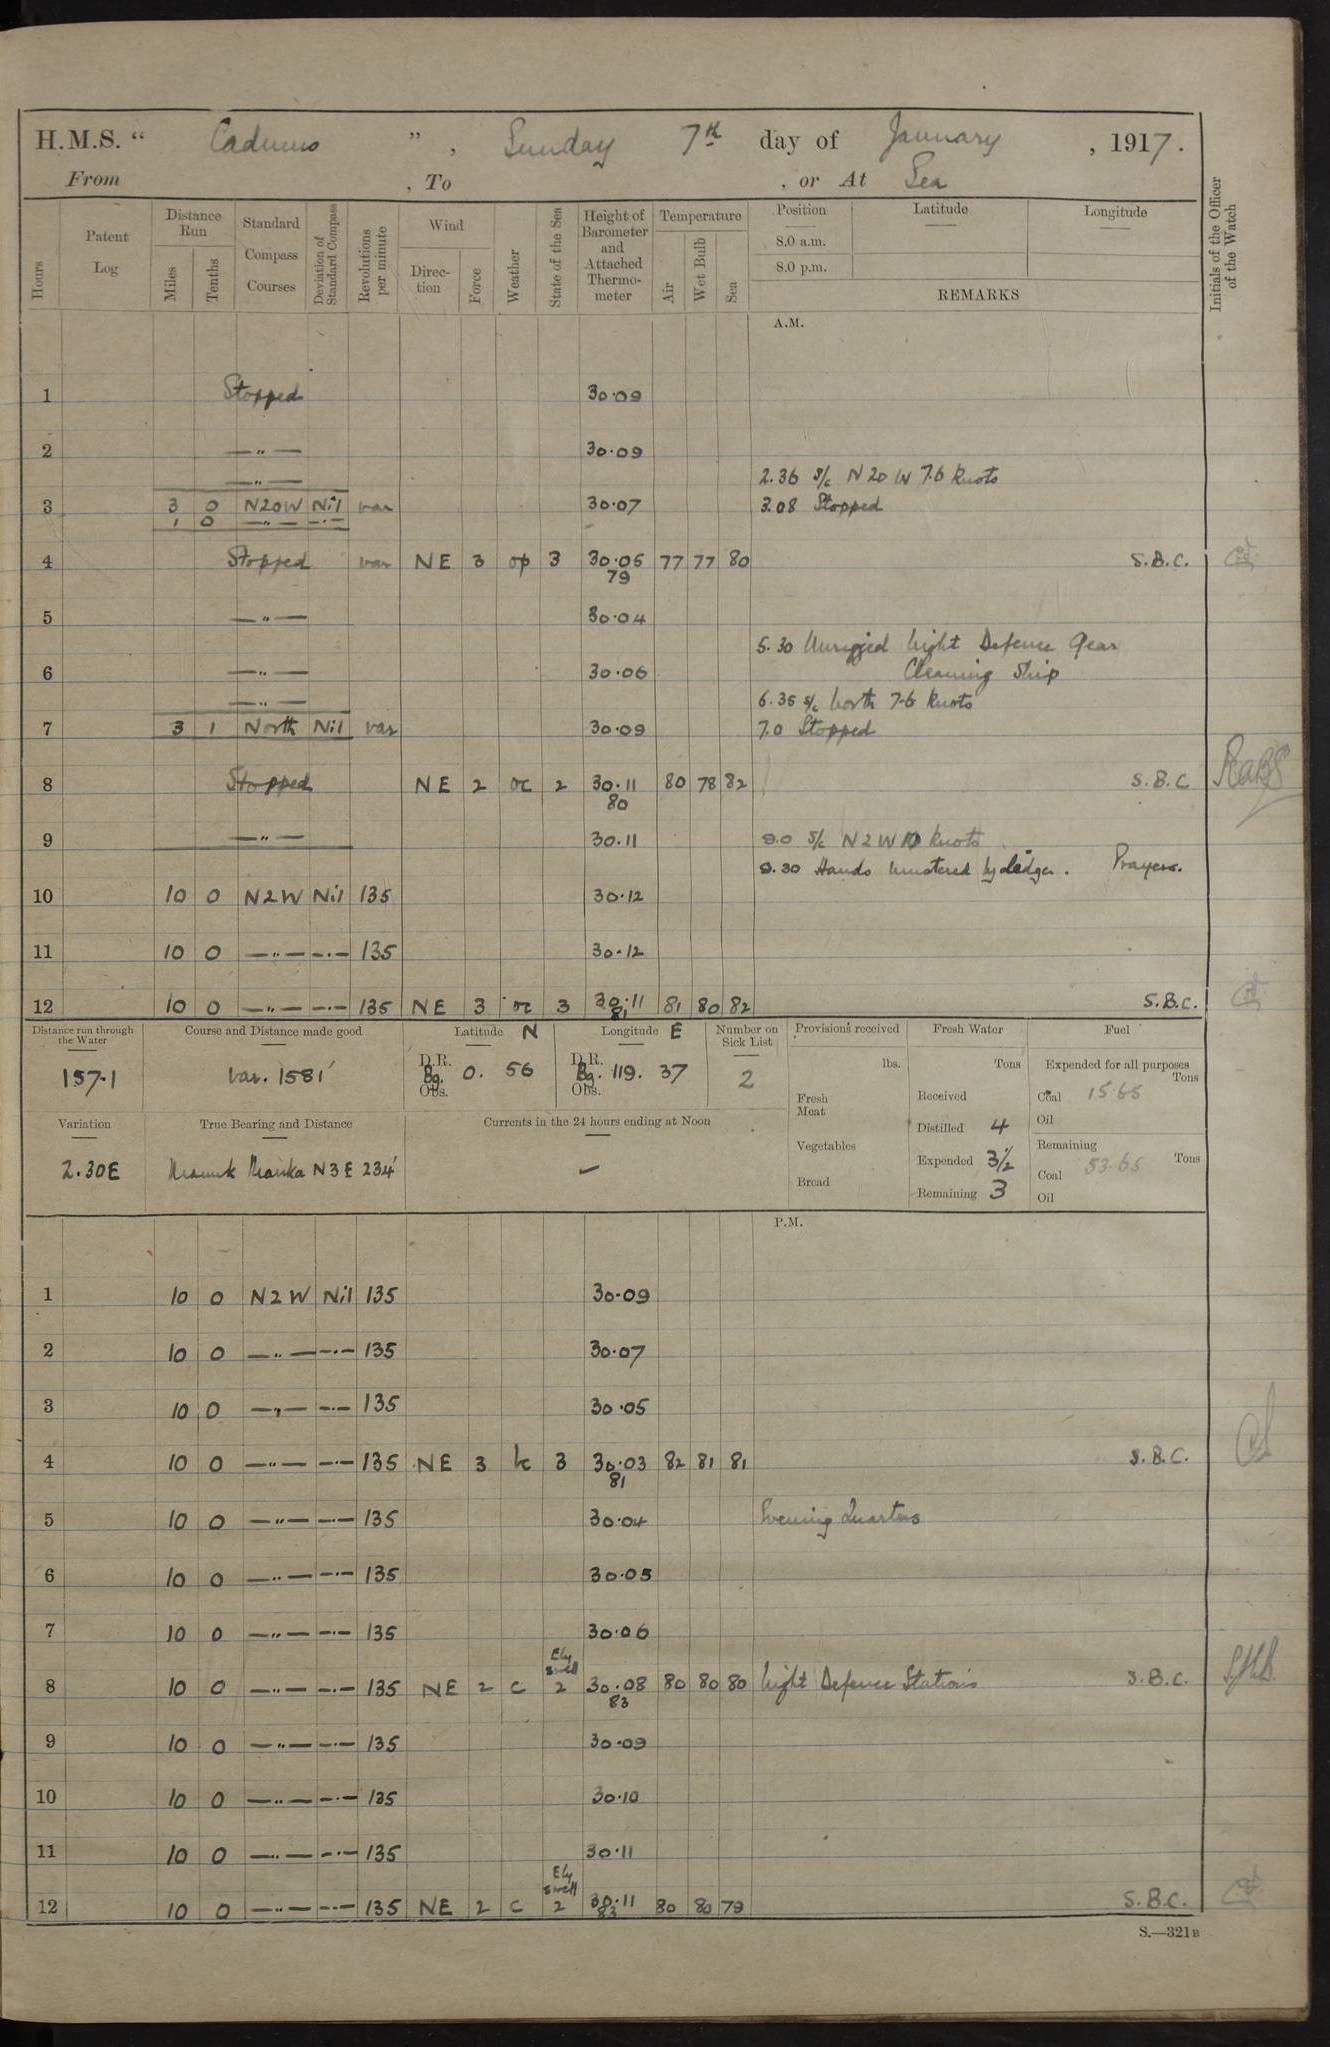 H.M.S. " Cadmus ", Sunday 7th day of January, 1917.
From , To , or At Sea
Hours
Patent Log
Distance Run
Miles
Tenths
Standard Compass Courses
Deviation of Standard Compass
Revolutions per minute
Wind
Direc-tion
Force
Weather
State of the Sea
Height of Barometer and Attached Thermo-meter
Temperature
Air
Wet Bulb
Sea
Position
Latitude
Longitude
8.0 a.m.
8.0 p.m.
REMARKS
Initials of the Officer of the Watch
A.M.
1 Stopped 30.09
2 —"— 30.09
—"— 2.36 S/c N 20 W 7.6 knots
3 3 0 N20W Nil var 30.07 3.08 Stopped
1 0 —"— —"—
4 Stopped var NE 3 op 3 30.05 77 77 80 S.B.C.
79
5 —"— 30.04
5.30 Unrigged Night Defence Gear
6 —"— 30.06 Cleaning Ship
—"— 6.35 S/c North 7.6 knots
7 3 1 North Nil var 30.09 7.0 Stopped
8 Stopped NE 2 oc 2 30.11 80 78 82 S.B.C
80
9 —"— 30.11 9.0 S/c N 2 W 10 knots
9.30 Hands mustered by ledger. Prayers.
10 10 0 N2W Nil 135 30.12
11 10 0 —"— —"— 135 30.12
12 10 0 —"— —"— 135 NE 3 oc 3 30.11 81 80 82 S.B.C.
81
Distance run through the Water
Course and Distance made good
Latitude N
Longitude E
Number on Sick List
Provisions received
Fresh Water
Fuel
157.1
var. 158'
D.R. Bg. Obs. 0. 56
D.R. Bg. Obs. 119. 37
2
lbs.
Tons
Expended for all purposes
Tons
Fresh Meat
Received
Coal 15.65
Oil
Variation
True Bearing and Distance
Currents in the 24 hours ending at Noon
Distilled 4
Vegetables
Expended 3½
Remaining
Coal 53.65 Tons
2.30E
Manuk Manka N 3 E 234'
Bread
Remaining 3
Oil
P.M.
1 10 0 N2W Nil 135 30.09
2 10 0 —"— —"— 135 30.07
3 10 0 —"— —"— 135 30.05
4 10 0 —"— —"— 135 NE 3 bc 3 30.03 82 81 81 S.B.C.
81
5 10 0 —"— —"— 135 30.04 Evening Quarters
6 10 0 —"— —"— 135 30.05
7 10 0 —"— —"— 135 30.06
Ely swell
8 10 0 —"— —"— 135 NE 2 c 2 30.08 80 80 80 Night Defence Stations S.B.C.
83
9 10 0 —"— —"— 135 30.09
10 10 0 —"— —"— 135 30.10
11 10 0 —"— —"— 135 30.11
Ely swell
12 10 0 —"— —"— 135 NE 2 c 2 30.11 80 80 79 S.B.C.
83
S.—321B